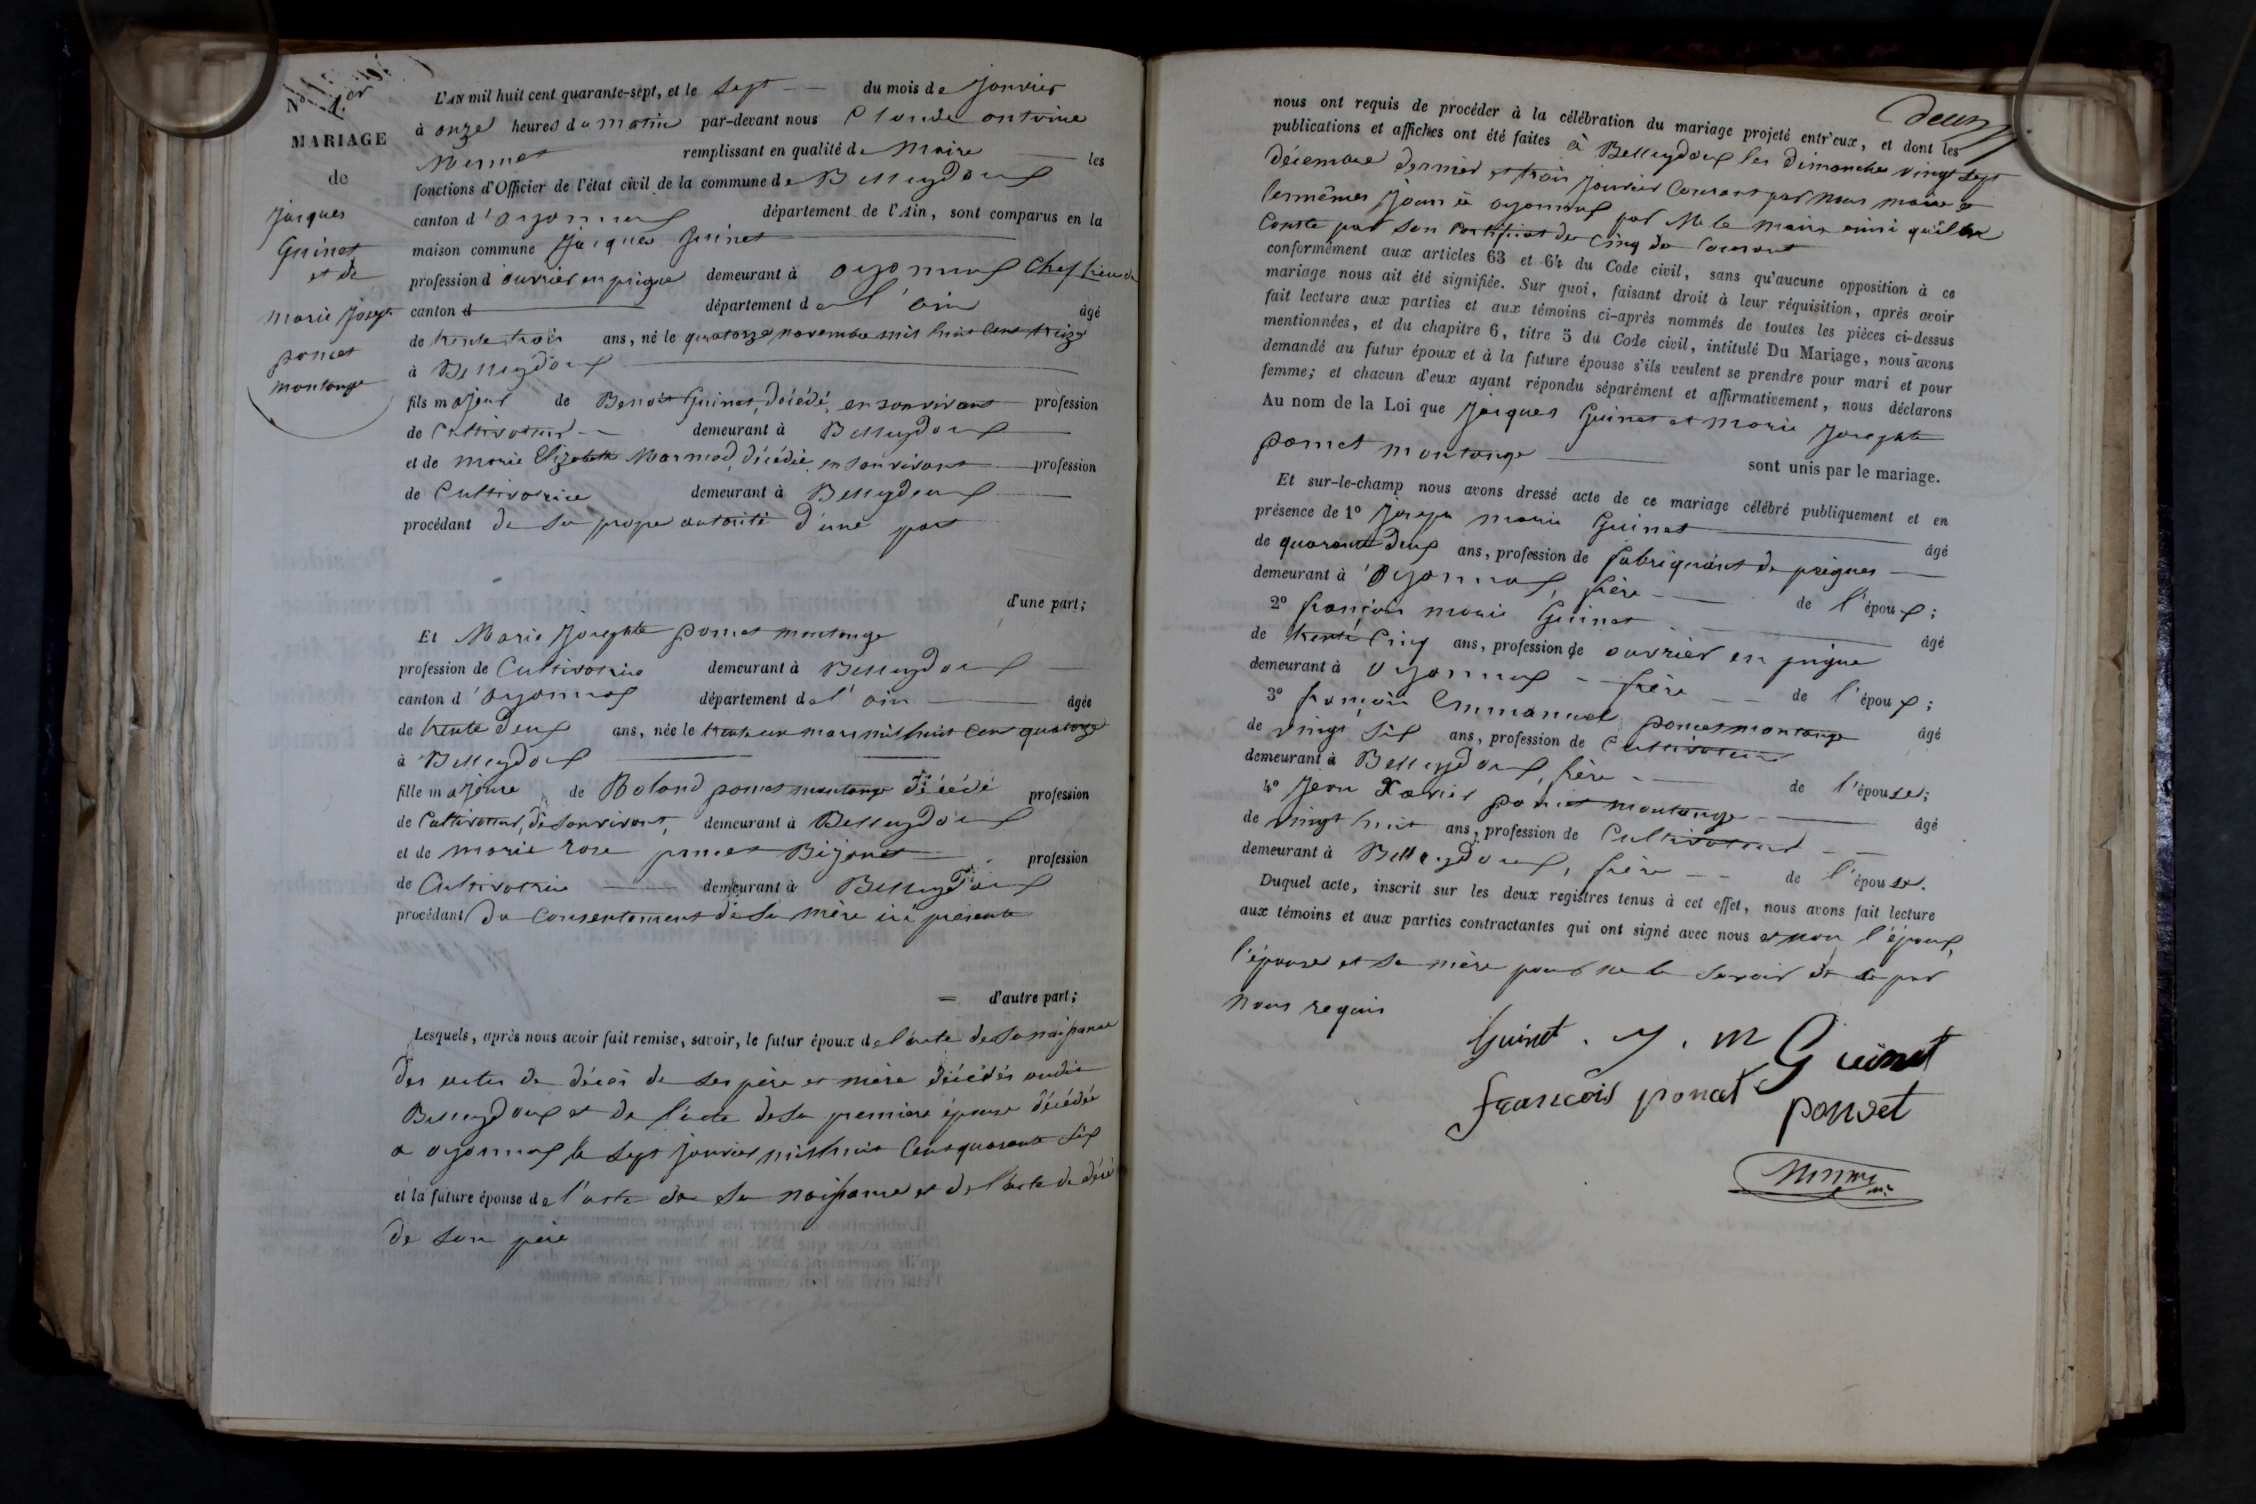 N° 1.er
MARIAGE
de
Jacques
Guinet
et de
Marie Josephte
poncet
montange
L'AN mil huit cent quarante-sept, et le sept du mois de Janvier
à onze heures du matin par-devant nous Claude antoine
Mermet remplissant en qualité de Maire les
fonctions d'Officier de l'état civil de la commune de Belleydoux
canton d'oyonnax département de l'Ain, sont comparus en la
maison commune Jacques Guinet
profession d ouvrier en peigne demeurant à oyonnax chef lieu de
canton d département de l'ain âgé
de trente trois ans, né le quatorze novembre mil huit cent treize
à Belleydoux
fils majeur de Benoit Guinet, décédé, en son vivant profession
de Cultivateur demeurant à Belleydoux
et de marie Elizabeth Marmod, décédée, en son vivant profession
de Cultivatrice demeurant à Belleydoux
procédant de sa propre autorité d'une part
d'une part;
Et Marie Josephte poncet montange
profession de Cultivatrice demeurant à Belleydoux
canton d'oyonnax département de l'ain âgée
de trente deux ans, née le trente un mars mil huit cent quatorze
à Belleydoux
fille majeure de Roland poncet montange décédé profession
de Cultivateur, de son vivant, demeurant à Belleydoux
et de marie rose poncet Bijonet profession
de Cultivatrice demeurant à Belleydoux
procédant du Consentement de sa mère ici présente
= d'autre part;
Lesquels, après nous avoir fait remise, savoir, le futur époux de l'acte de sa naissance
des actes de décès de ses père et mère décédés audit
Belleydoux et de l'acte de sa première épouse décédée
a oyonnax le sept Janvier mil huit Cent quarante six
et la future épouse de l'acte de sa naissance et de l'acte de décè
de son père
deux
nous ont requis de procéder à la célébration du mariage projeté entr'eux, et dont les
publications et affiches ont été faites à Belleydoux les dimanches vingt sept
décembre dernier et trois Janvier Courant par nous maire et
les mêmes Jours à oyonnax par M le maire ainsi qu'il
Conste par son certificat du Cinq du Courant
conformément aux articles 63 et 64 du Code civil, sans qu'aucune opposition à ce
mariage nous ait été signifiée. Sur quoi, faisant droit à leur réquisition, après avoir
fait lecture aux parties et aux témoins ci-après nommés de toutes les pièces ci-dessus
mentionnées, et du chapitre 6, titre 5 du Code civil, intitulé Du Mariage, nous avons
demandé au futur époux et à la future épouse s'ils veulent se prendre pour mari et pour
femme; et chacun d'eux ayant répondu séparément et affirmativement, nous déclarons
Au nom de la Loi que Jacques Guinet et Marie Josephte
poncet montange sont unis par le mariage.
Et sur-le-champ nous avons dressé acte de ce mariage célébré publiquement et en
présence de 1° Joseph marie Guinet âgé
de quarante deux ans, profession de fabriquant de peignes
demeurant à Oyonnax, frère de l'époux;
2° françois marie Guinet âgé
de trente Cinq ans, profession de ouvrier en peigne
demeurant à oyonnax frère de l'époux;
3° françois Emmanuel poncet montange âgé
de vingt six ans, profession de Cultivateur
demeurant à Belleydoux, frère de l'épouse;
4° Jean Xavier poncet montange âgé
de vingt huit ans, profession de Cultivateur
demeurant à Belleydoux, frère de l'épouse.
Duquel acte, inscrit sur les deux registres tenus à cet effet, nous avons fait lecture
aux témoins et aux parties contractantes qui ont signé avec nous et non l'époux,
l'épouse et sa mère pour ne le savoir de ce par
nous requis
Guinet . J . M Guinet
francois poncet poncet
Mermet